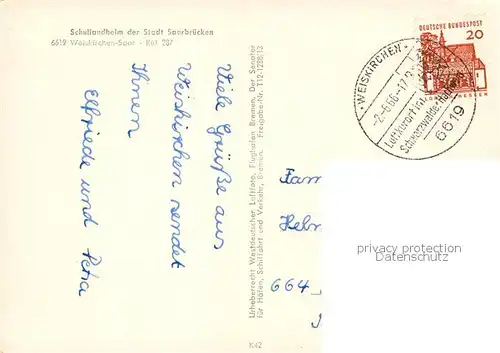 Schullandheim der Stadt Saarbrücken
6619 Weiskirchen-Saar - Ruf 287
Viele Grüße aus
Weiskirchen sendet
Ihnen
Elfriede und Petra
Urheberrecht Westdeutscher Luftfoto, Flughafen Bremen, Der Senator
für Häfen, Schiffahrt und Verkehr, Bremen. Freigabe-Nr.
K42
DEUTSCHE BUNDESPOST
20
WEISKIRCHEN
Luftkurort im
Schwarzwälder
6619
Fam
664
privacy protection
Datenschutz